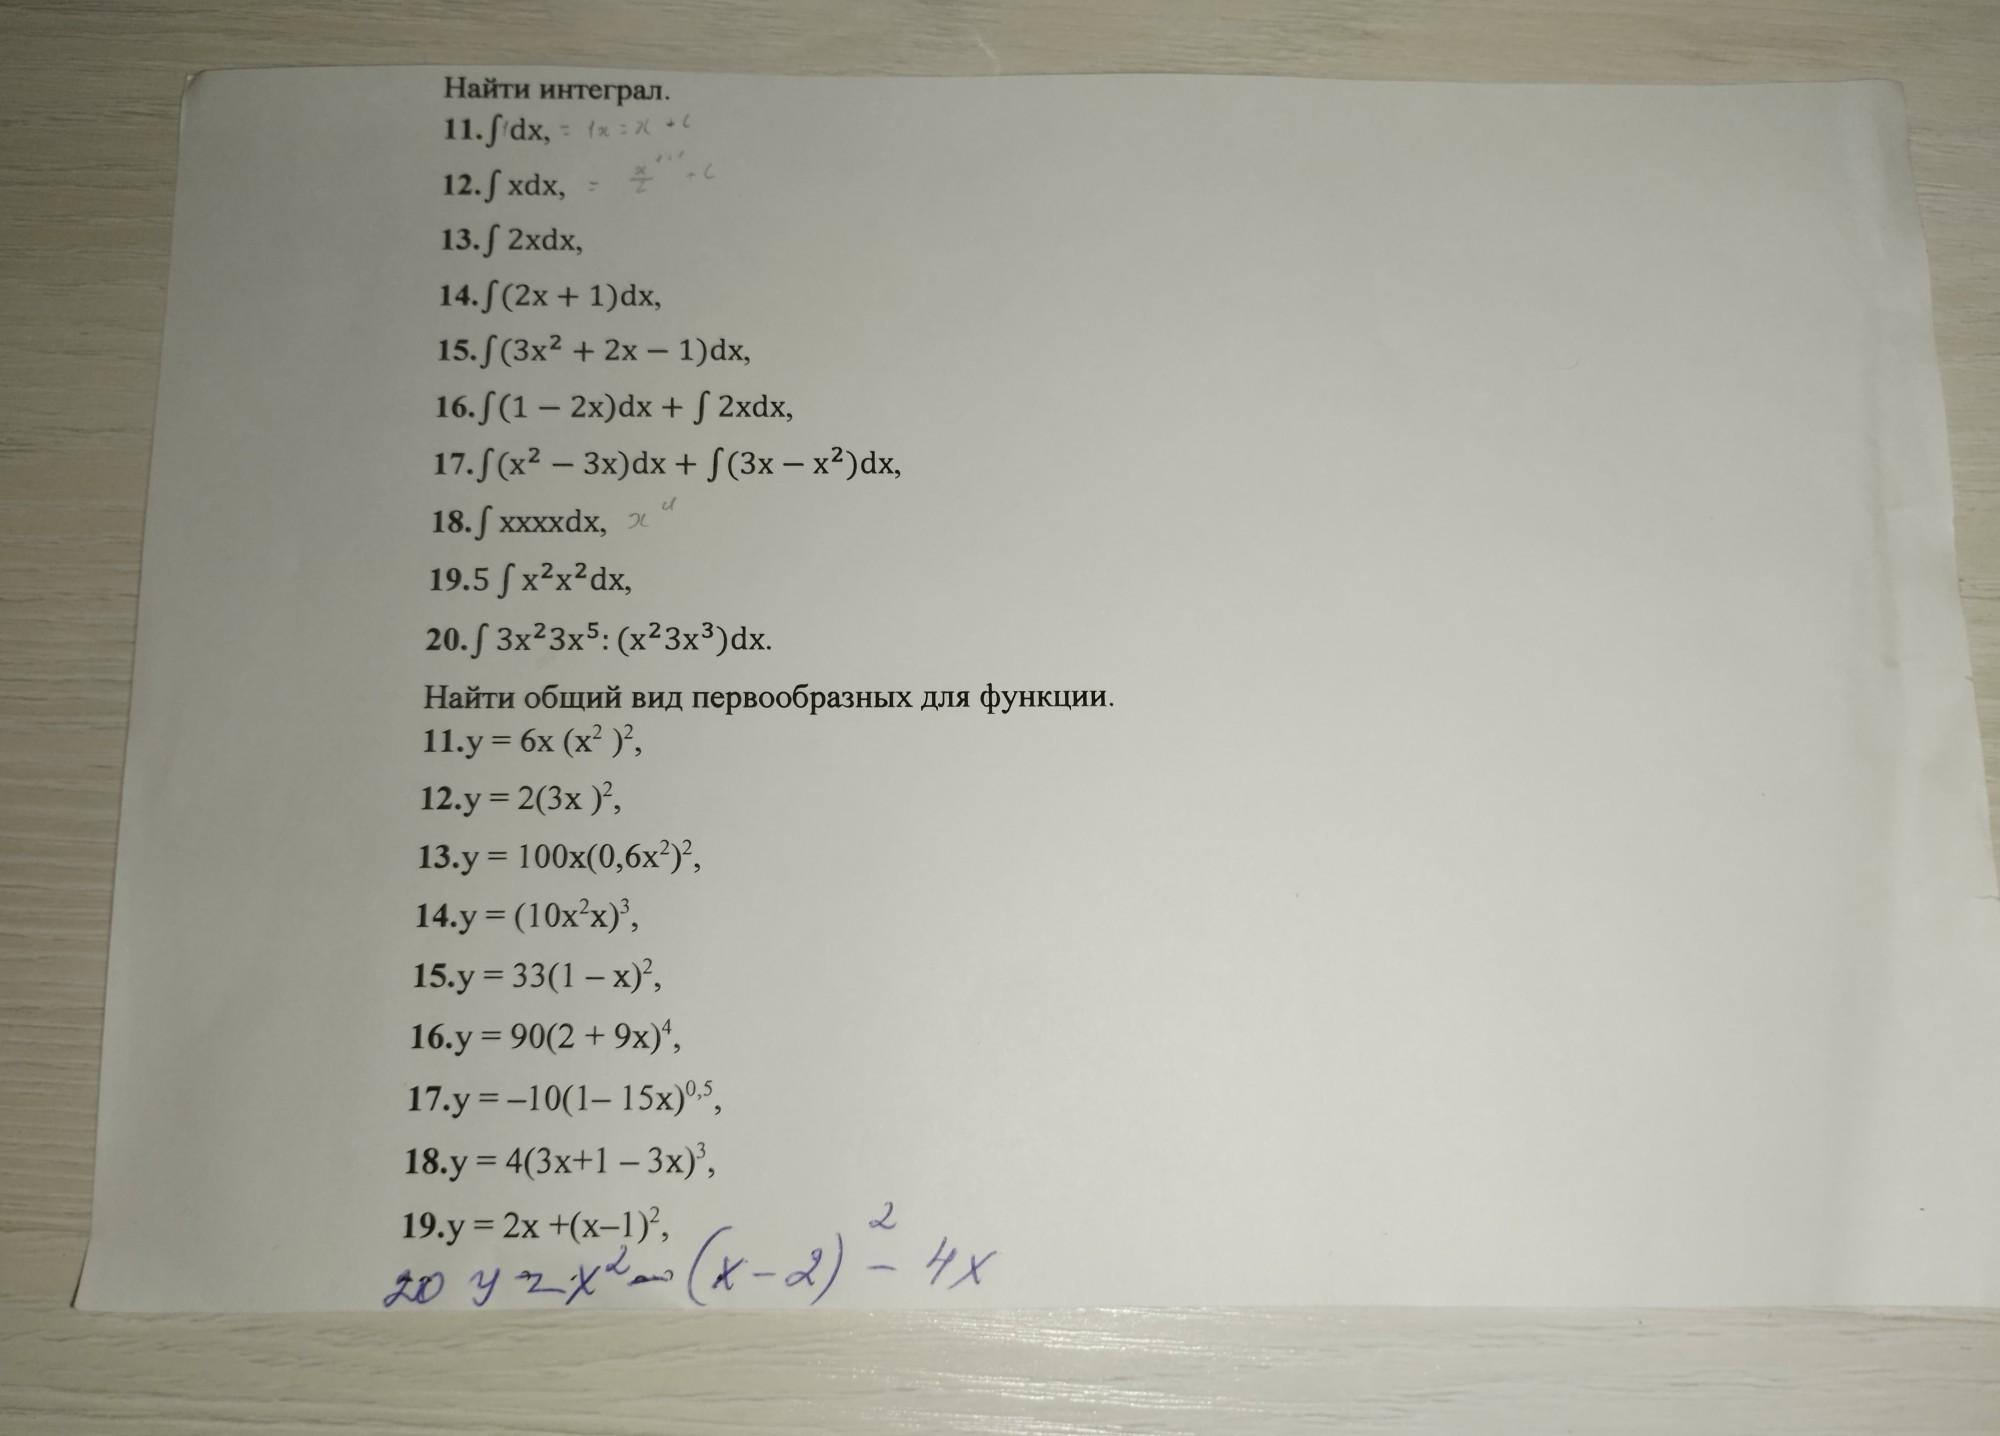 Найти интеграл.
11.∫1dx, = 1x = x + c
12.∫ xdx, = x¹⁺¹/2 + c
13.∫ 2xdx,
14.∫(2x + 1)dx,
15.∫(3x² + 2x − 1)dx,
16.∫(1 − 2x)dx + ∫ 2xdx,
17.∫(x² − 3x)dx + ∫(3x − x²)dx,
18.∫ xxxxdx, x⁴
19.5 ∫ x²x²dx,
20.∫ 3x²3x⁵: (x²3x³)dx.
Найти общий вид первообразных для функции.
11.y = 6x (x² )²,
12.y = 2(3x )²,
13.y = 100x(0,6x²)²,
14.y = (10x²x)³,
15.y = 33(1 – x)²,
16.y = 90(2 + 9x)⁴,
17.y = –10(1– 15x)⁰,⁵,
18.y = 4(3x+1 – 3x)³,
19.y = 2x +(x–1)²,
20 y = x² – (x – 2)² – 4x